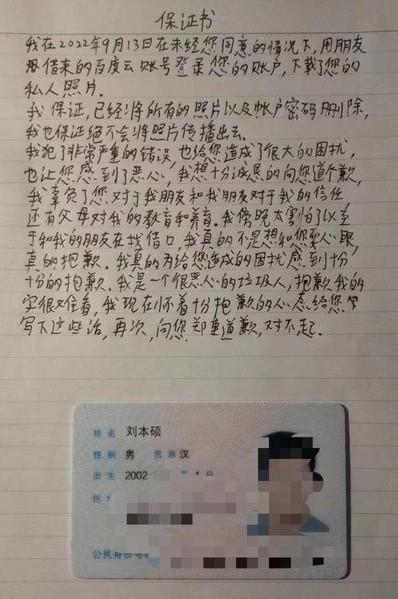 保证书
我在2022年9月13日在未经您同意的情况下,用朋友
借来的百度云账号登录您的账户,下载了您的
私人照片.
我保证,已经将所有的照片以及帐户密码删除,
我也保证绝不会将照片传播出去.
我犯了非常严重的错误,也给您造成了很大的困扰,
也让您感到了恶心,我想十分诚恳的向您道个歉,
我辜负了您对于我朋友和我朋友对于我的信任
还有父母对我的教育和养育.我傍晚太害怕了以至
于和我的朋友在找借口,我真的不是想和您耍心眼,
真的抱歉.我真的为给您造成的困扰感到十分
十分的抱歉.我是一个很恶心的垃圾人,抱歉我的
字很难看,我现在怀着十分抱歉的心态给您
写下这些话,再次,向您郑重道歉,对不起.
姓名 刘本硕
性别 男 民族 汉
出生 2002
住
公民身份号